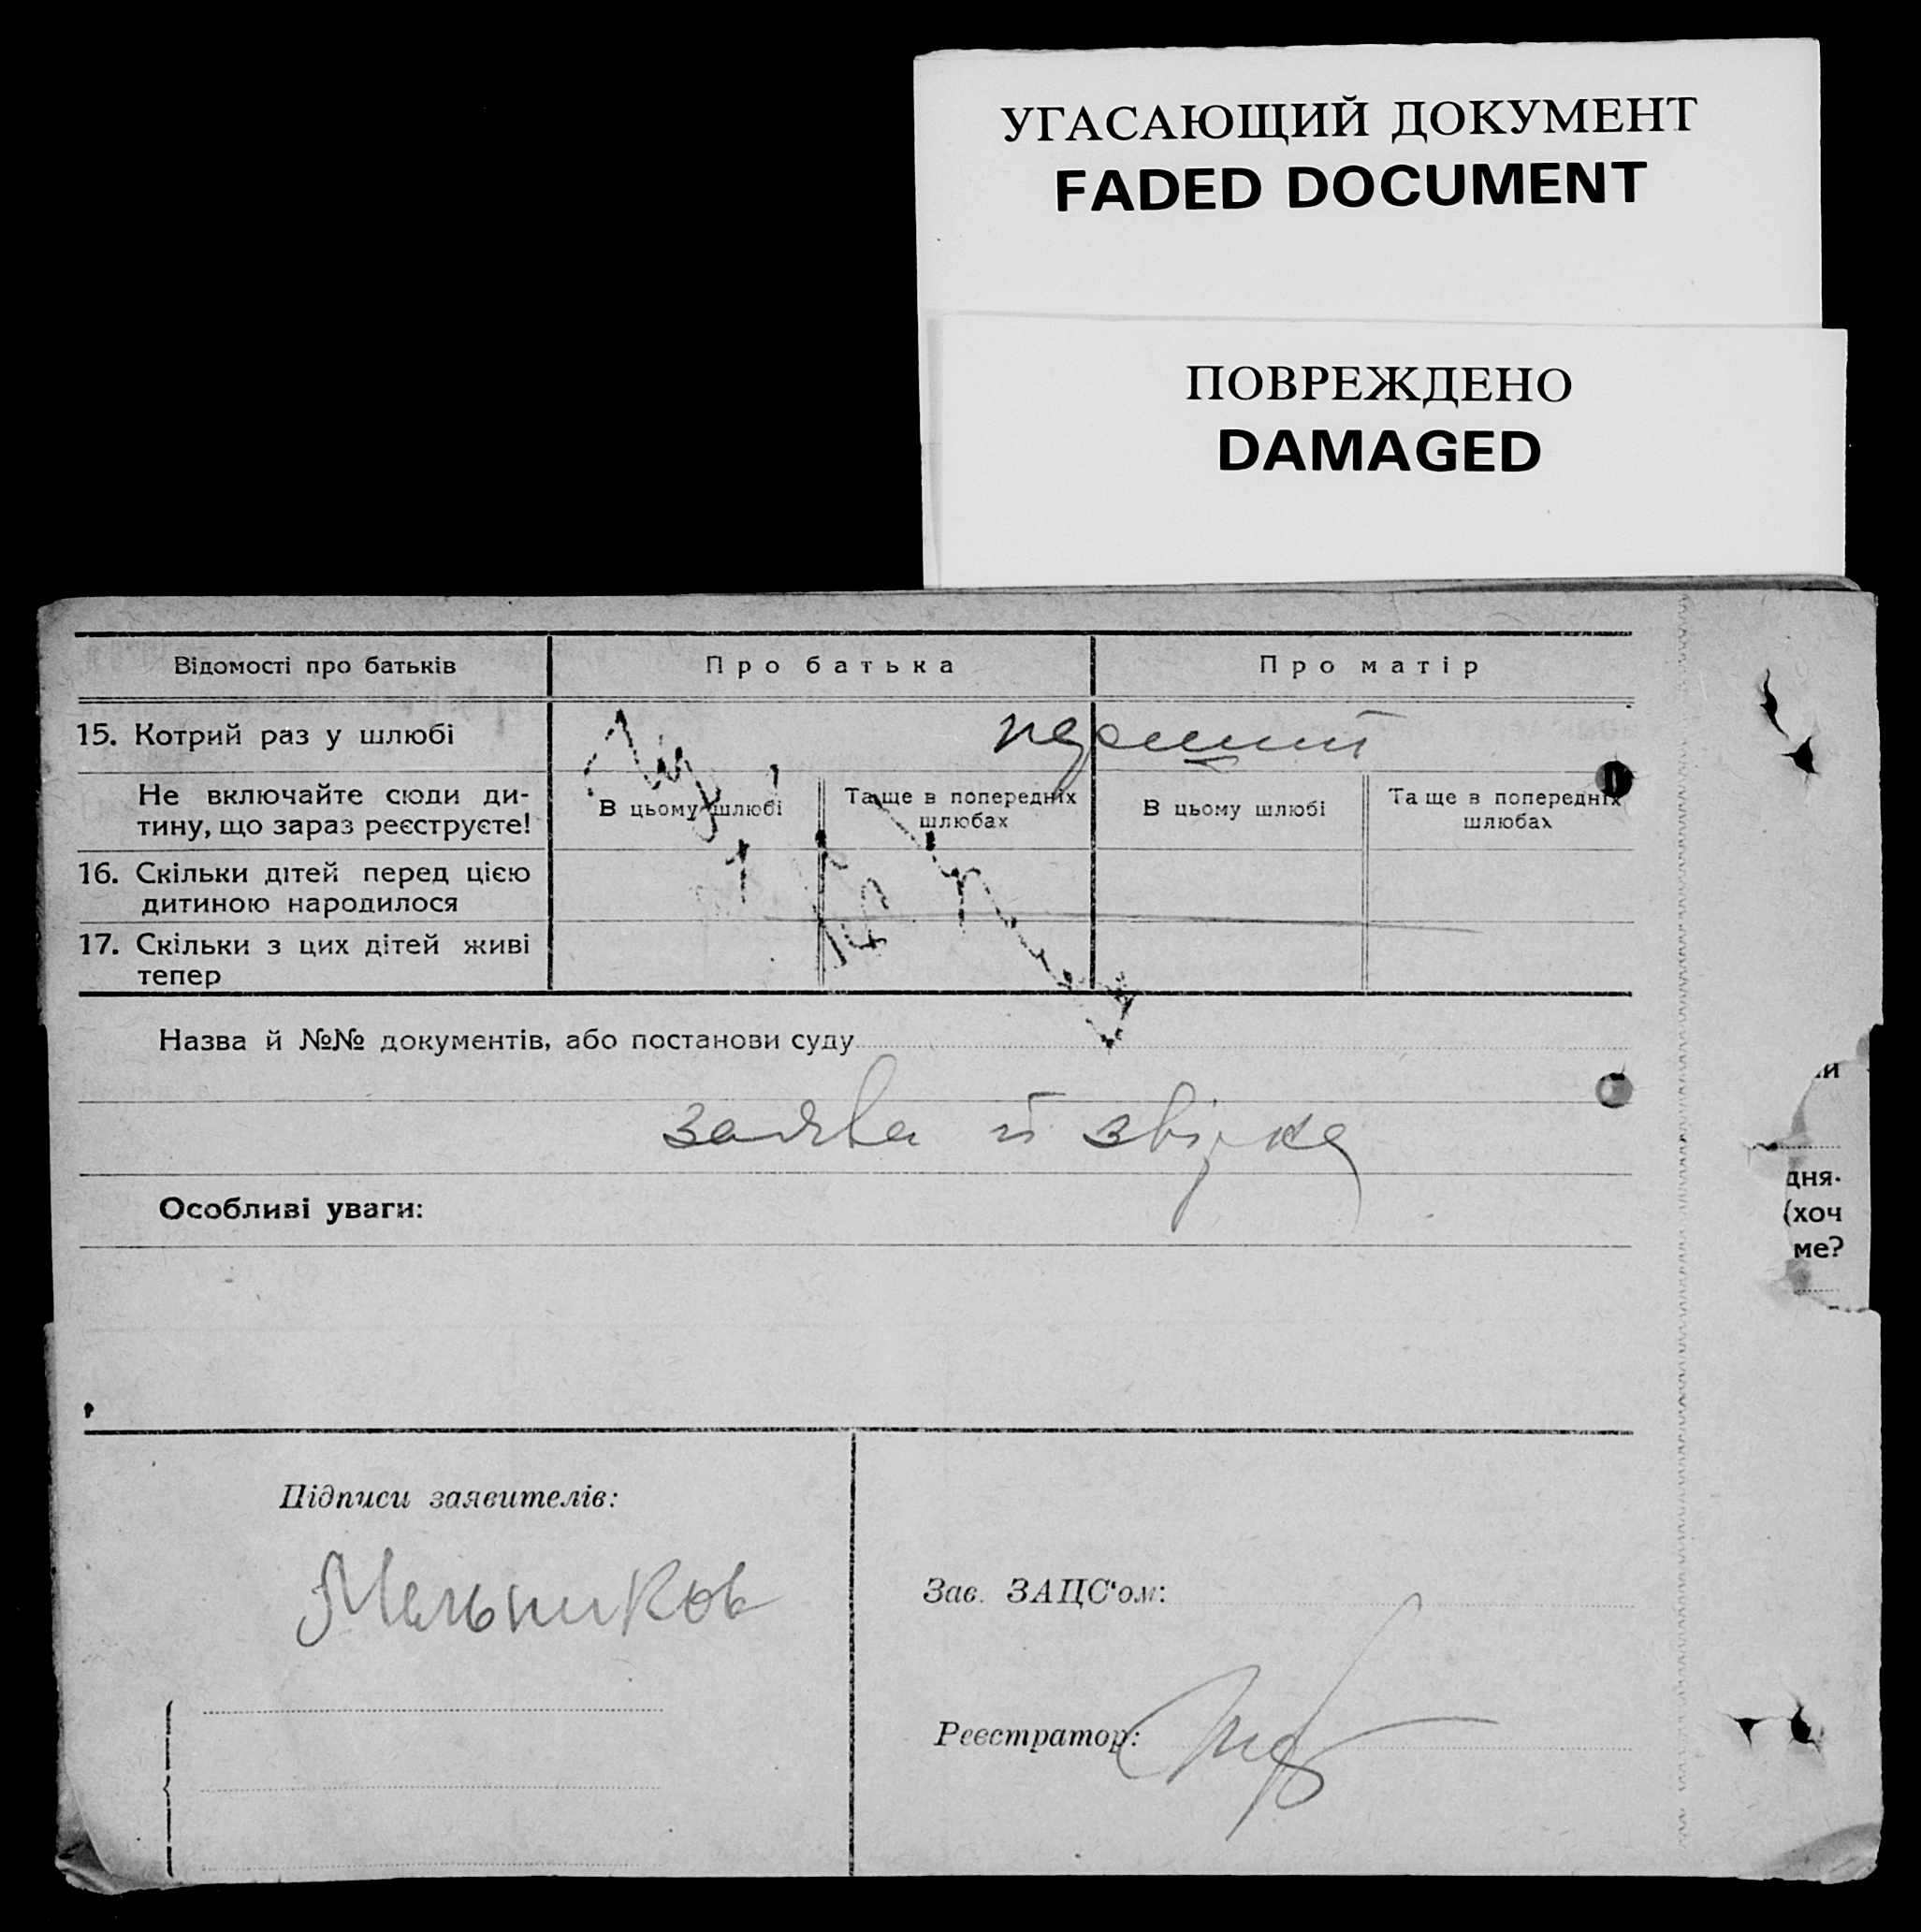 УГАСАЮЩИЙ ДОКУМЕНТ
FADED DOCUMENT
ПОВРЕЖДЕНО
DAMAGED
Відомості про батьків
Про батька
Про матір
15. Котрий раз у шлюбі
перший
Не включайте сюди ди-
тину, що зараз реєструєте!
В цьому шлюбі
Та ще в попередніх
шлюбах
В цьому шлюбі
Та ще в попередніх
шлюбах
16. Скільки дітей перед цією
дитиною народилося
17. Скільки з цих дітей живі
тепер
Назва й №№ документів, або постанови суду
заява й звірка
Особливі уваги:
дня-
(хоч
ме?
Підписи заявителів:
Мельников
Зав. ЗАЦС‘ом:
Реєстратор: